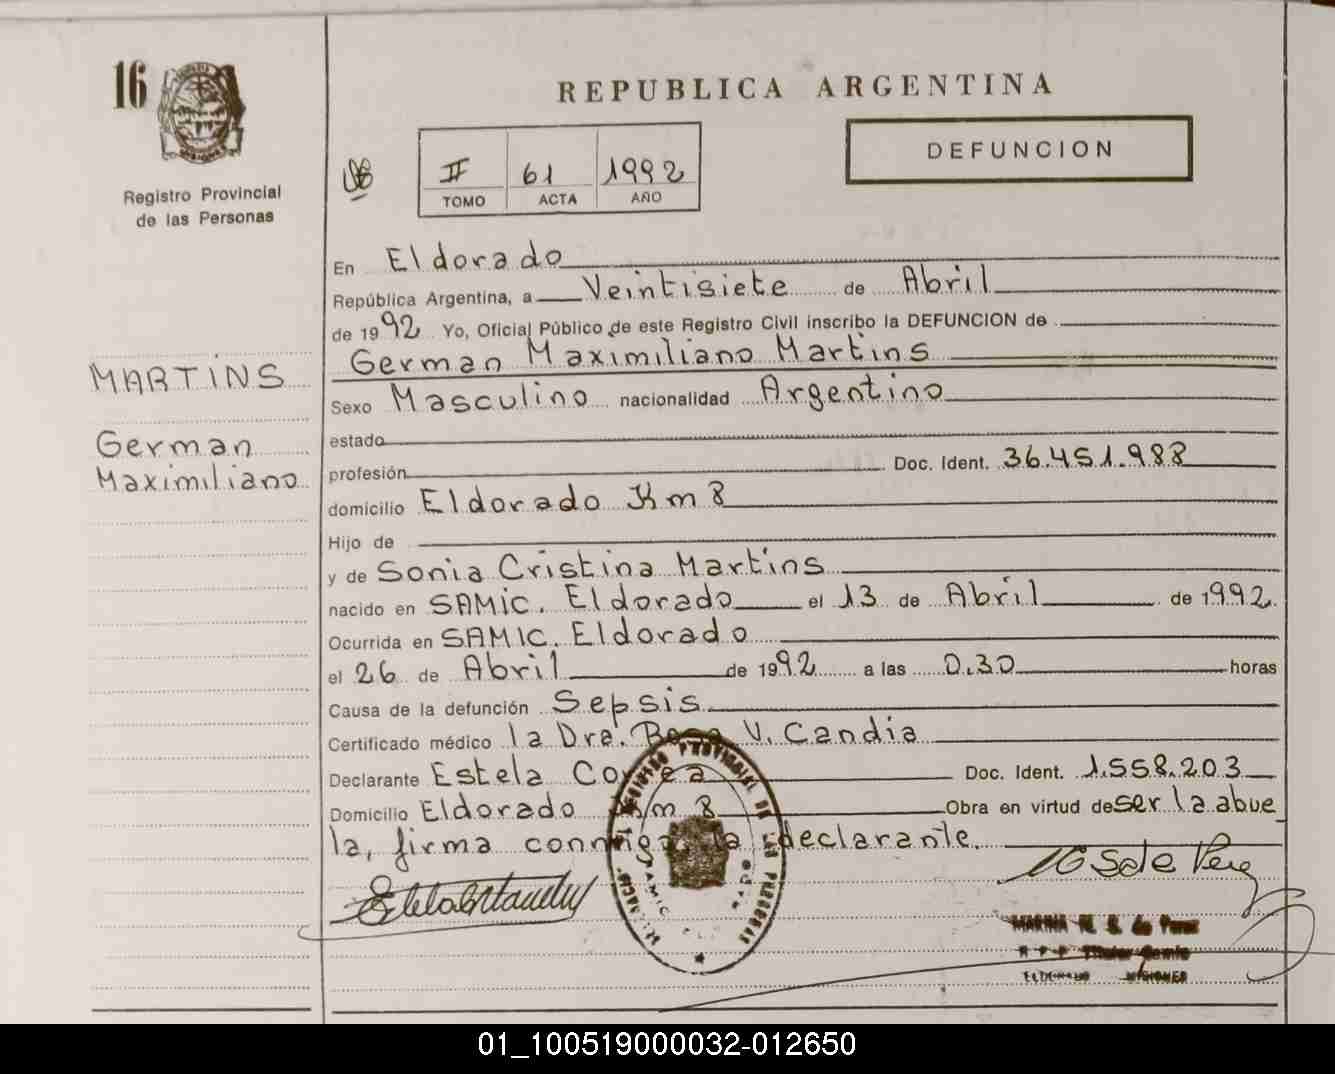 16
REPUBLICA ARGENTINA
DEFUNCION
II 61 1992
TOMO ACTA AÑO
Registro Provincial
de las Personas
En Eldorado
República Argentina, a Veintisiete de Abril
de 1992 Yo, Oficial Público de este Registro Civil inscribo la DEFUNCION de
German Maximiliano Martins
MARTINS
German
Maximiliano
Sexo Masculino nacionalidad Argentino
estado
profesión Doc. Ident. 36.451.988
domicilio Eldorado Km 8
Hijo de
y de Sonia Cristina Martins
nacido en SAMIC. Eldorado el 13 de Abril de 1992.
Ocurrida en SAMIC. Eldorado
el 26 de Abril de 1992 a las 0.30 horas
Causa de la defunción Sepsis
Certificado médico la Dra. V. Candia
Declarante Estela Doc. Ident. 1.558.203
Domicilio Eldorado Km 8 Obra en virtud de ser la abue
la, firma conmigo la declarante.
REGISTRO PROVINCIAL DE LAS PERSONAS
MARINA M. S. de Perez
ELDORADO MISIONES
01_100519000032-012650